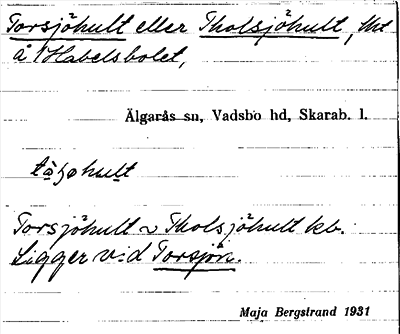 Torsjöhult eller Tholsjöhult, tht
å Habelsbolet,
Älgarås sn, Vadsbo hd, Skarab. l.
Torsjöhult ~ Tholsjöhult kb.
Ligger vid Torsjön.
Maja Bergstrand 1931